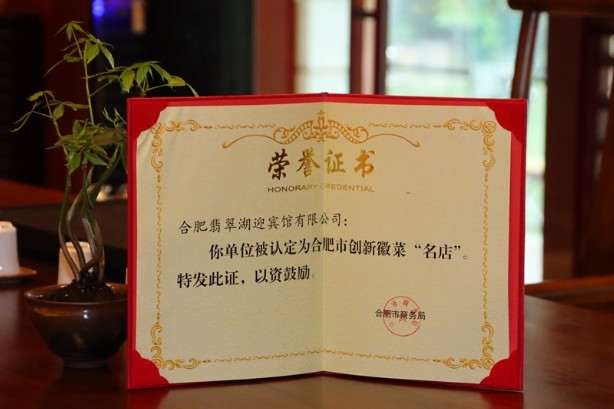 荣誉证书
HONORARY CREDENTIAL
合肥翡翠湖迎宾馆有限公司：
你单位被认定为合肥市创新徽菜“名店”。
特发此证，以资鼓励。
合肥市商务局